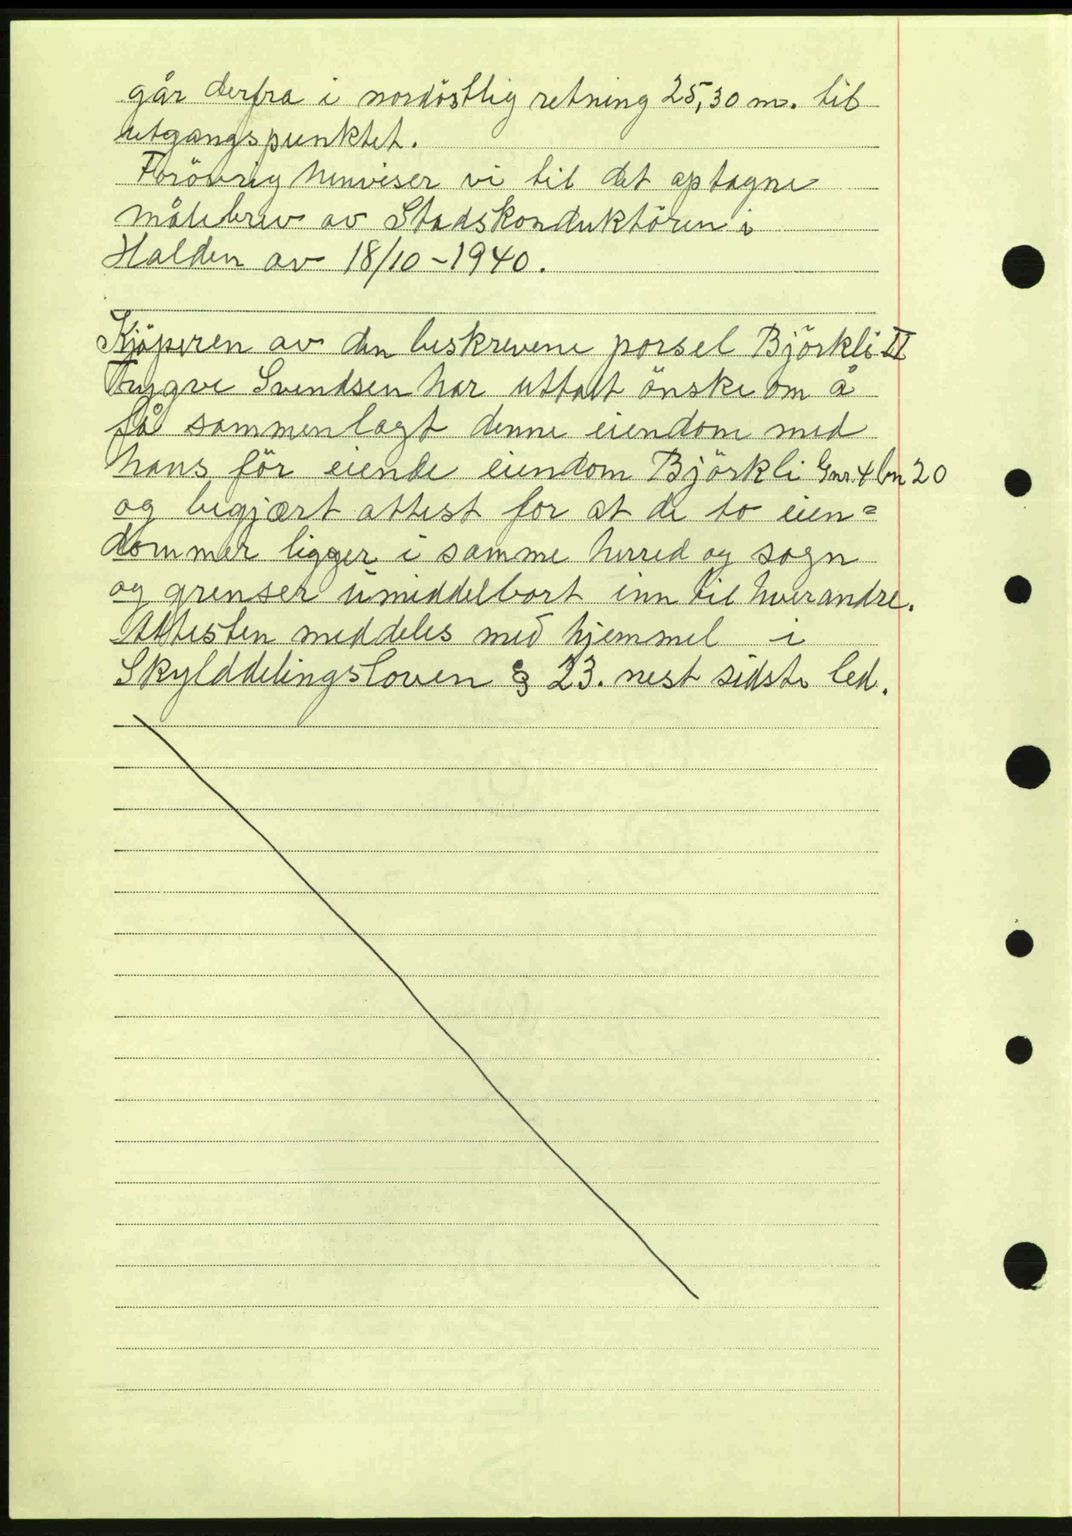 går derfra i nordöstlig retning 25,30 m. til
utgangspunktet.
Forövrig henviser vi til det optagne
målebrev av Stadskonduktören i
Halden av 18/10-1940.
Kjöperen av den beskrevene porsel Björkli II
Trygve Svendsen har uttalt önske om å
få sammenlagt denne eiendom med
hans för eiende eiendom Björkli Gnr. 4 bn 20
og begjært attest for at de to eien=
dommer ligger i samme herred og sogn
og grenser umiddelbart inn til hverandre.
Attesten meddeles med hjemmel i
Skylddelingsloven § 23. nest sidste led.